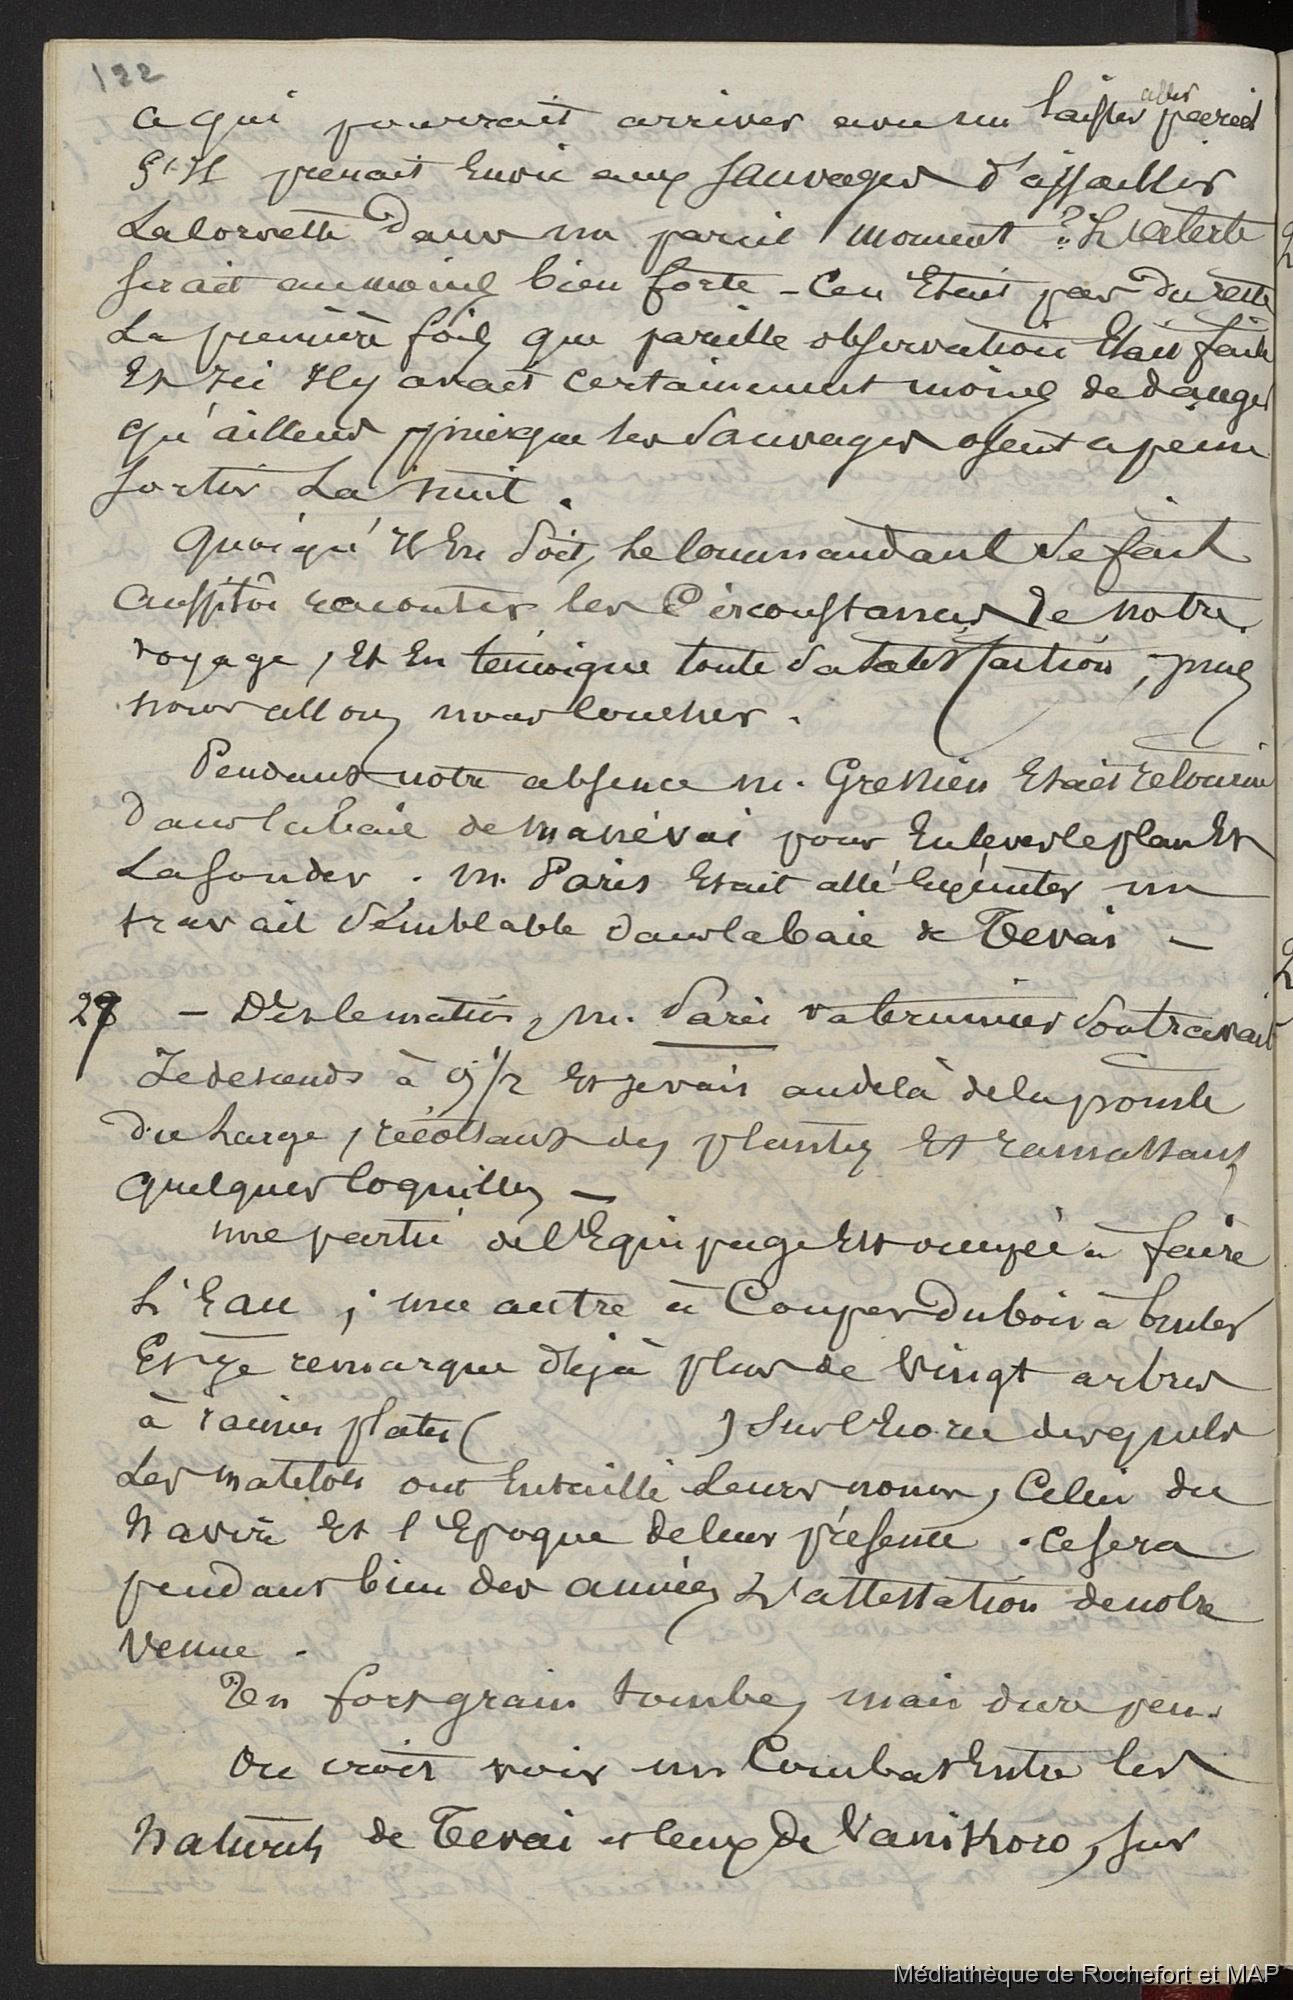 122
ce qui pourrait arriver avec un laisser aller pareil
S'Il prenait Envie aux Sauvages d'assaillir
La Corvette Dans un pareil moment ? L'alerte
serait au moins bien forte - Ce n'Etait pas Du reste
La première fois que pareille observation Etait faite
Et Ici Il y avait certainement moins de danger
qu'ailleurs puisque les Sauvages osent a peine
sortir La nuit.
Quoiqu'Il En Soit, Le Commandant Se fait
Aussitôt raconter les Circonstances De notre
voyage, Et En témoigne toute Sa Satisfaction, puis
nous allons nous Coucher.
Pendant notre absence m. Gressien Etait retourné
Dans la baie de manévai pour Enlever le plan Et
La Sonder. M. Paris Etait allé Exécuter un
travail Semblable dans la baie de Tevai -
27 - Dès le matin, M. Paris va terminer Son travail
Je descends à 9 1/2 Et je vais au delà de la pointe
Du Large, récoltant des plantes Et ramassant
Quelques Coquilles -
une partie de l'Equipage Est occupée à faire
L'Eau ; une autre à Couper Du bois à bruler
Et Je remarque déjà plus de Vingt arbres
à racines plates ( ) Sur l'Ecorce desquels
Les matelots ont Entaillé Leurs noms, Celui du
Navire Et l'Epoque de leur présence. Ce sera
pendant bien des années L'attestation de notre
Venue.
Un fort grain tombe, mais dure peu.
On croit voir un Combat Entre les
Naturels de Tevai et Ceux De Vanikoro, sur
Médiathèque de Rochefort et MAP